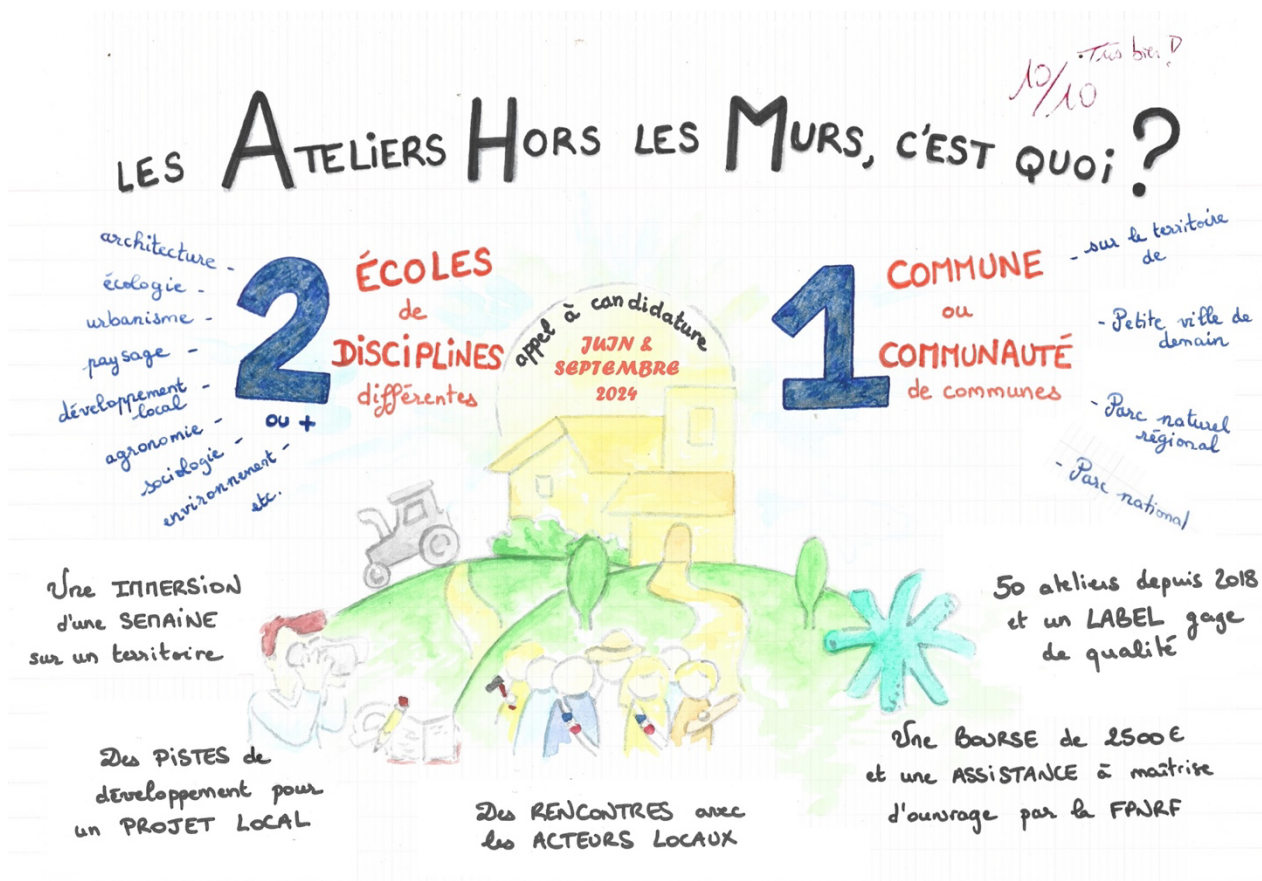 10/10 Très bien !
LES ATELIERS HORS LES MURS, C'EST QUOI ?
architecture -
écologie -
urbanisme -
paysage -
développement -
local
agronomie -
sociologie -
environnement -
etc.
2
ou +
ÉCOLES
de
DISCIPLINES
différentes
appel à candidature
JUIN &
SEPTEMBRE
2024
1
COMMUNE
ou
COMMUNAUTÉ
de communes
- sur le territoire
de
- Petite ville de
demain
- Parc naturel
régional
- Parc national
Une IMMERSION
d'une SEMAINE
sur un territoire
50 ateliers depuis 2018
et un LABEL gage
de qualité
Des PISTES de
développement pour
un PROJET LOCAL
Des RENCONTRES avec
les ACTEURS LOCAUX
Une BOURSE de 2500€
et une ASSISTANCE à maîtrise
d'ouvrage par la FPNRF